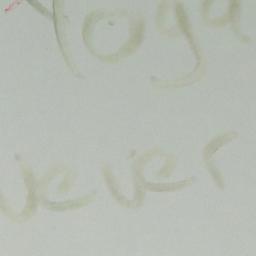 Yoga
never